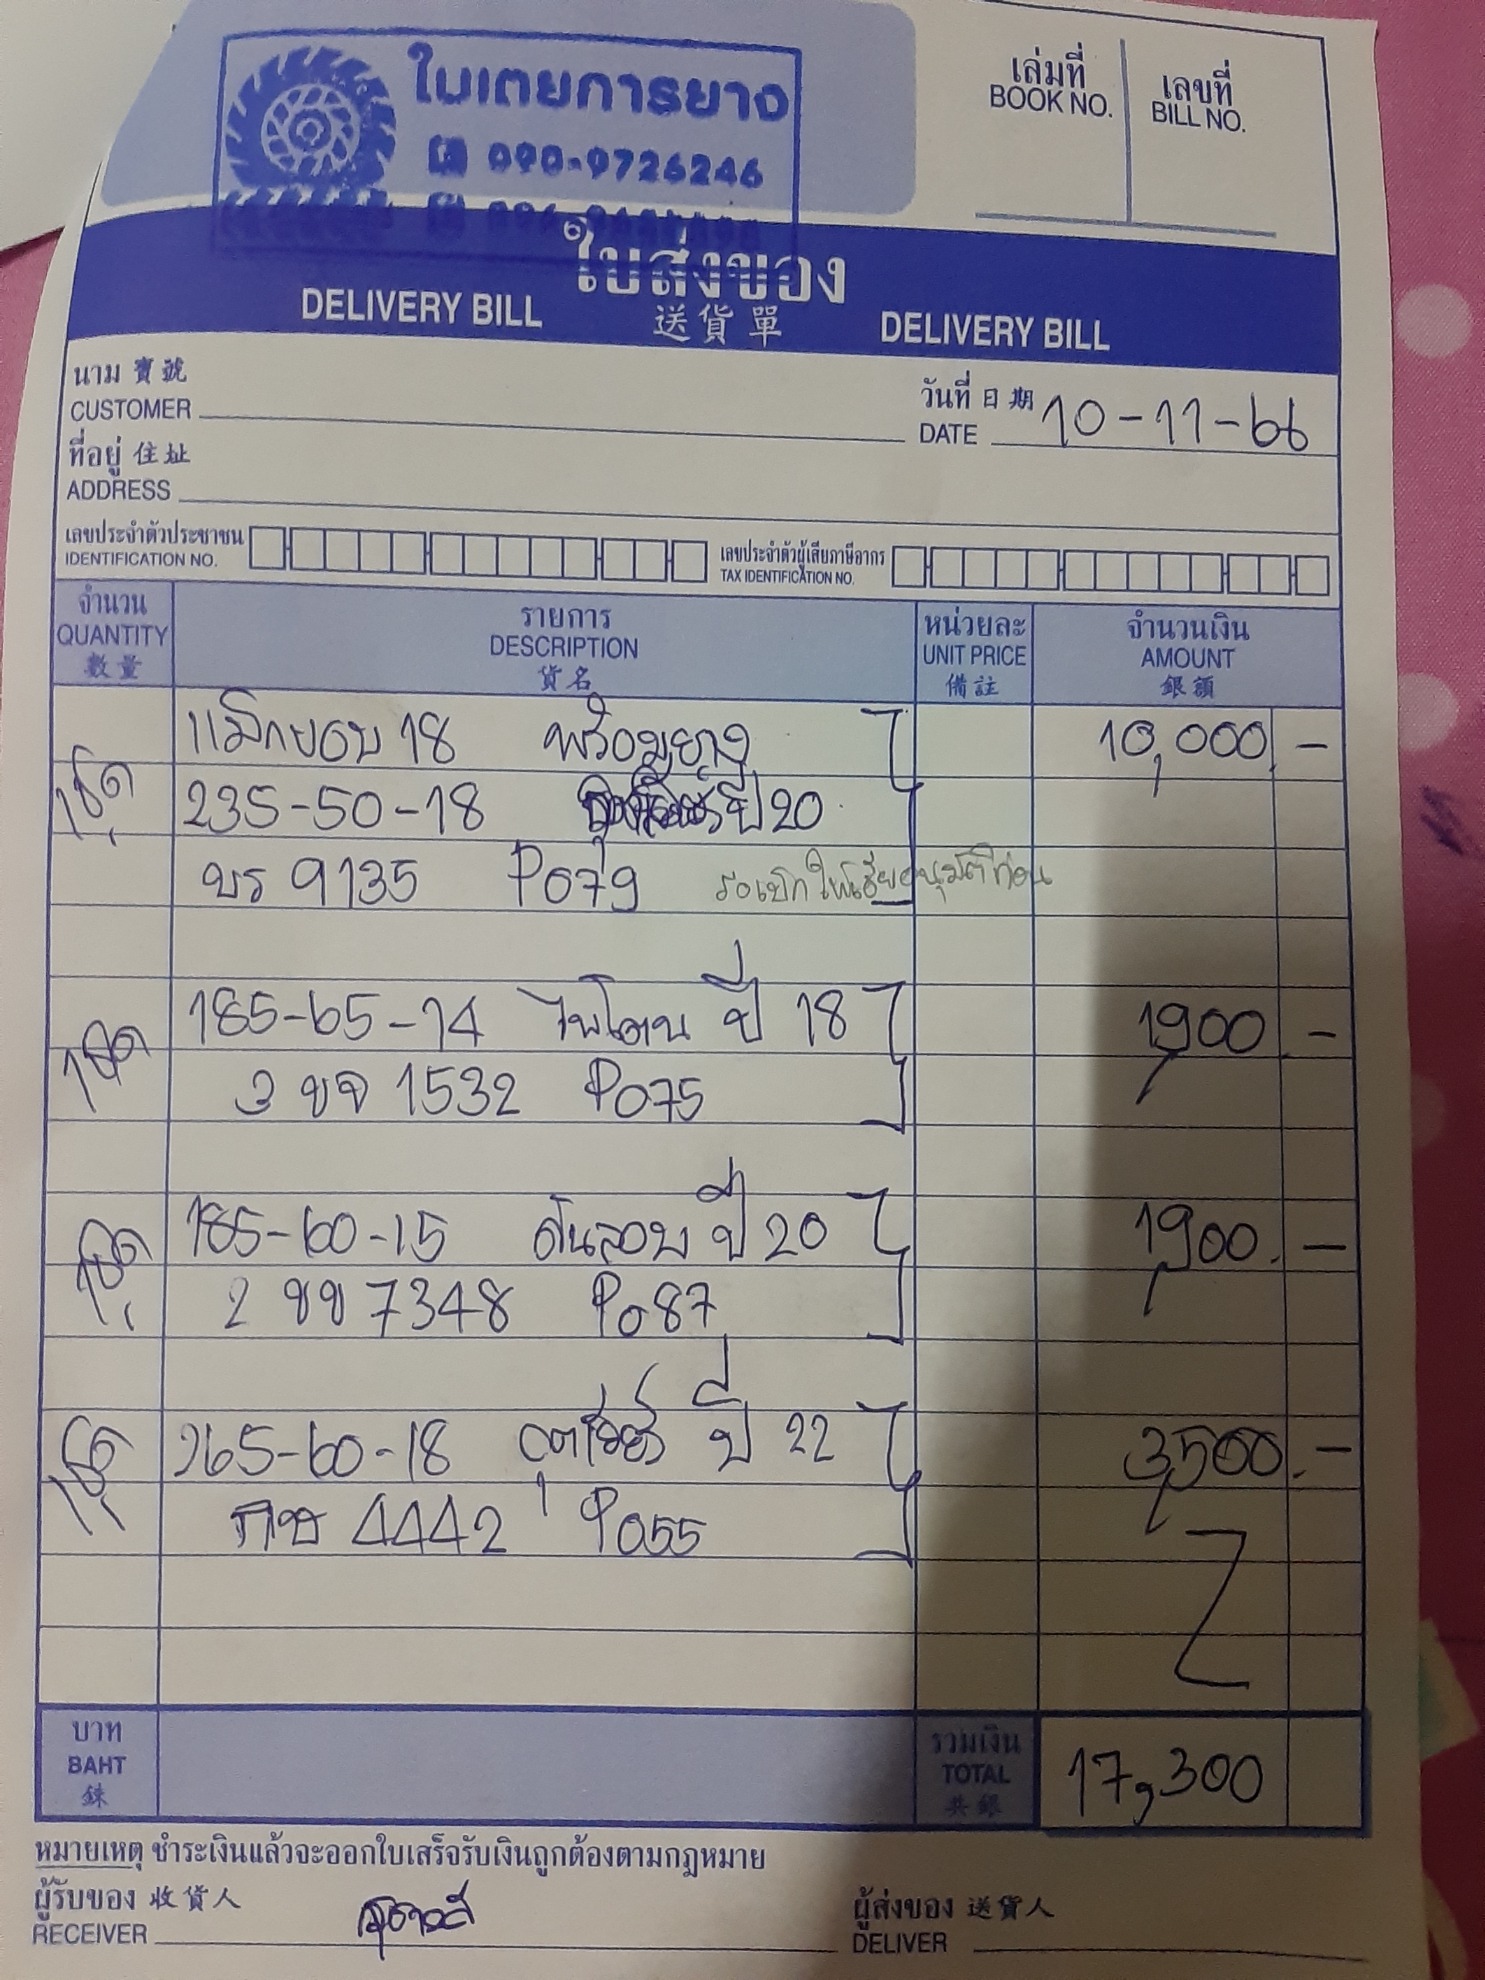 ใบเตยการยาง
090-9726246
เล่มที่
BOOK NO.
เลขที่
BILL NO.
ใบส่งของ
DELIVERY BILL 送貨單 DELIVERY BILL
นาม 寶號
CUSTOMER
วันที่ 日期 10-11-66
DATE
ที่อยู่ 住址
ADDRESS
เลขประจำตัวประชาชน
IDENTIFICATION NO.
เลขประจำตัวผู้เสียภาษีอากร
TAX IDENTIFICATION NO.
จำนวน รายการ หน่วยละ จำนวนเงิน
QUANTITY DESCRIPTION UNIT PRICE AMOUNT
數量 貨名 備註 銀額
แม็กขอบ 18 พร้อมยาง 10,000.-
1ชุด 235-50-18 ปี 20
บร 9135 P079 รอเบิก ให้เฮียอนุมัติก่อน
1ชุด 185-65-14 ไพโตน ปี 18 1,900.-
3 ขจ 1532 P075
1ชุด 185-60-15 ดันลอบ ปี 20 1,900.-
2 ขข 7348 P087
1ชุด 265-60-18 ปี 22 3,500.-
กษ 4442 P055
บาท รวมเงิน
BAHT TOTAL 17,300
銖 共銀
หมายเหตุ ชำระเงินแล้วจะออกใบเสร็จรับเงินถูกต้องตามกฎหมาย
ผู้รับของ 收貨人
RECEIVER
ผู้ส่งของ 送貨人
DELIVER